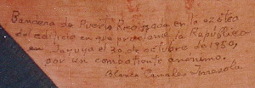 Bandera de Puerto Rico izada en la azotea
del edificio en que proclamó la República
en Jayuya el 30 de octubre de 1950,
por un combatiente anónimo.
Blanca Canales